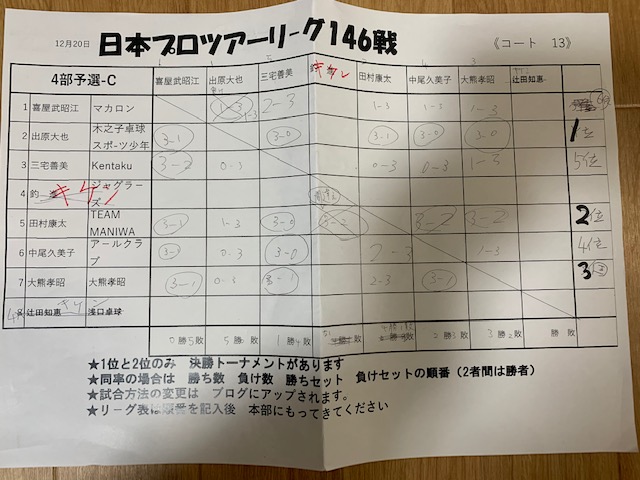 12月20日 日本プロツアーリーグ146戦 《コート 13》
4部予選-C 喜屋武昭江 出原大也 三宅善美 キケン 田村康太 中尾久美子 大熊孝昭 辻田知恵
1 喜屋武昭江 マカロン 1-3 2-3 1-3 1-3 1-3
2 出原大也 木之子卓球スポーツ少年 3-1 3-0 3-1 3-0 3-0 1位
3 三宅善美 Kentaku 3-2 0-3 0-3 0-3 1-3 5位
4 キケン ジャグラーズ
5 田村康太 TEAM MANIWA 3-1 1-3 3-0 3-2 3-2 2位
6 中尾久美子 アールクラブ 0-3 3-0 2-3 1-3 4位
7 大熊孝昭 大熊孝昭 3-1 0-3 2-3 3-1 3
8 辻田知恵 キケン 浅口卓球
0勝5敗 5勝敗 1勝4敗 4勝1敗 2勝3敗 3勝2敗 勝敗
★1位と2位のみ 決勝トーナメントがあります
★同率の場合は 勝ち数 負け数 勝ちセット 負けセットの順番(2者間は勝者)
★試合方法の変更は ブログにアップされます。
★リーグ表は順番を記入後 本部にもってきてください